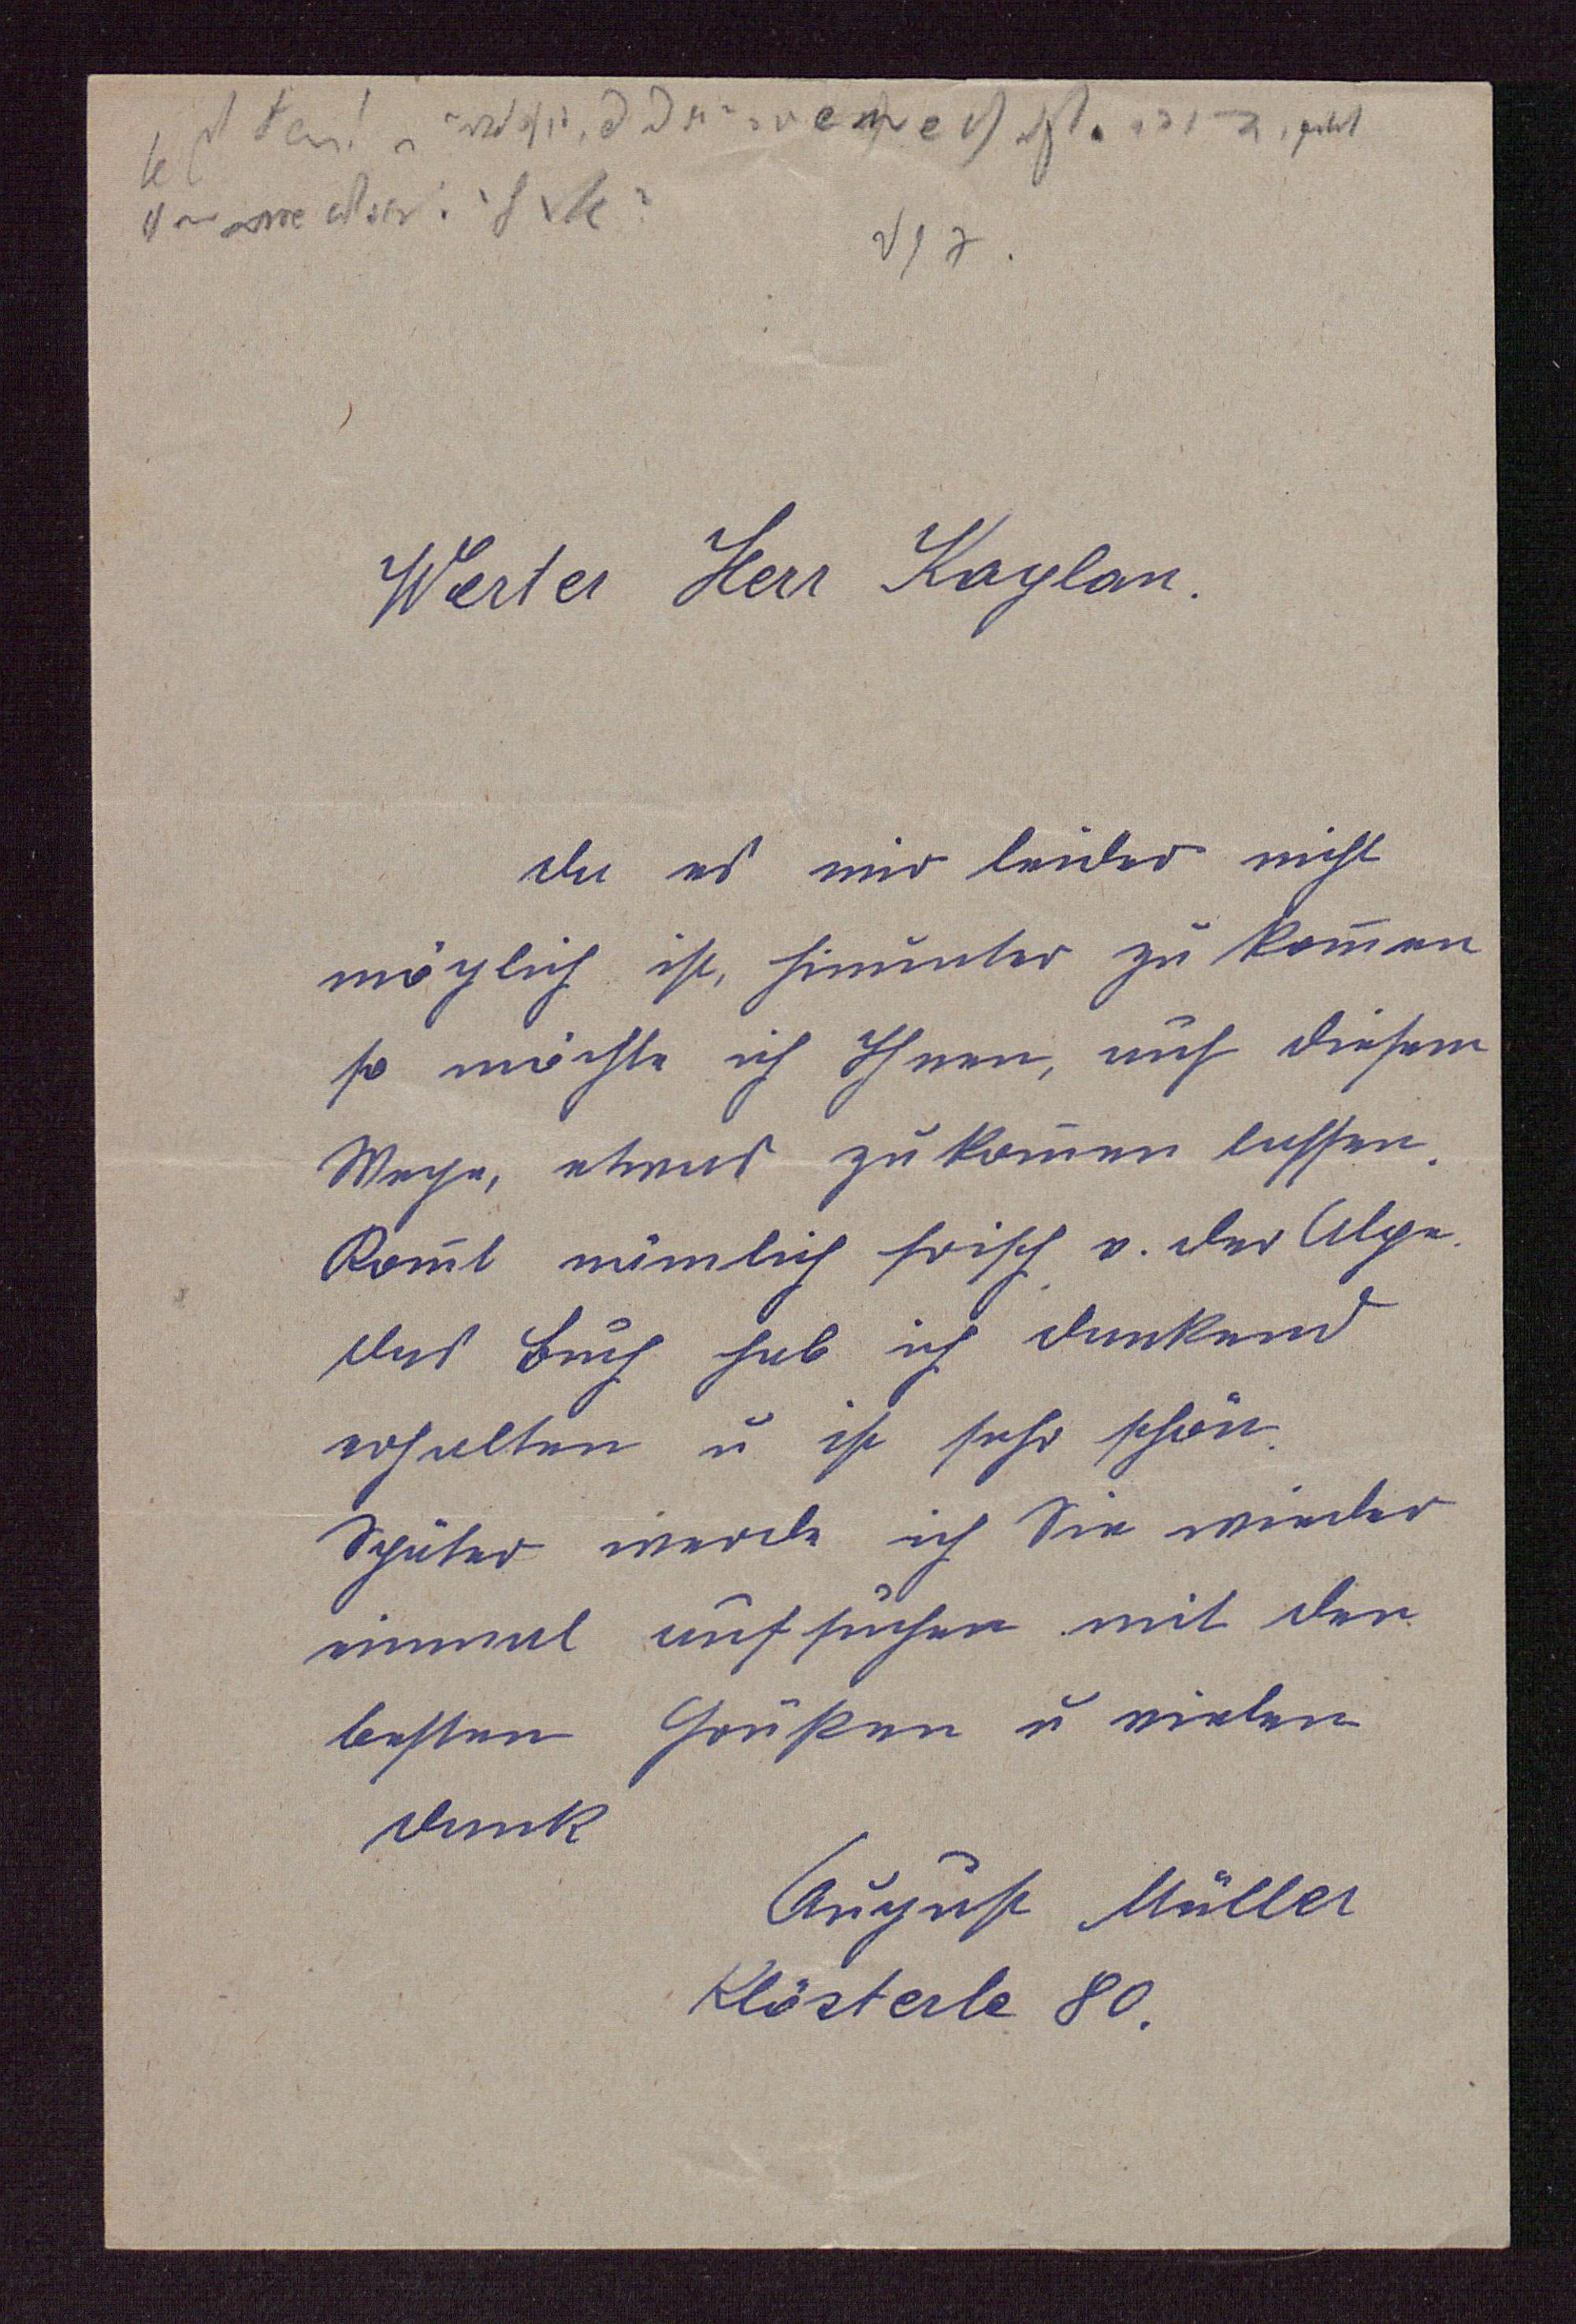 Werter Herr Kaplan.
da es mir leider nicht
möglich ist, hinunter zu kom̅en
so möchte ich Ihnen, auf diesem
Wege, etwas zukom̅en lassen.
Kom̅t nämlich frisch v. der Alpe.
das Buch hab ich dankend
erhalten u ist sehr schön.
Später werde ich Sie wieder
einmal aufsuchen mit den
besten Grüßen u vielen
dank
August Müller
Klösterle 80.